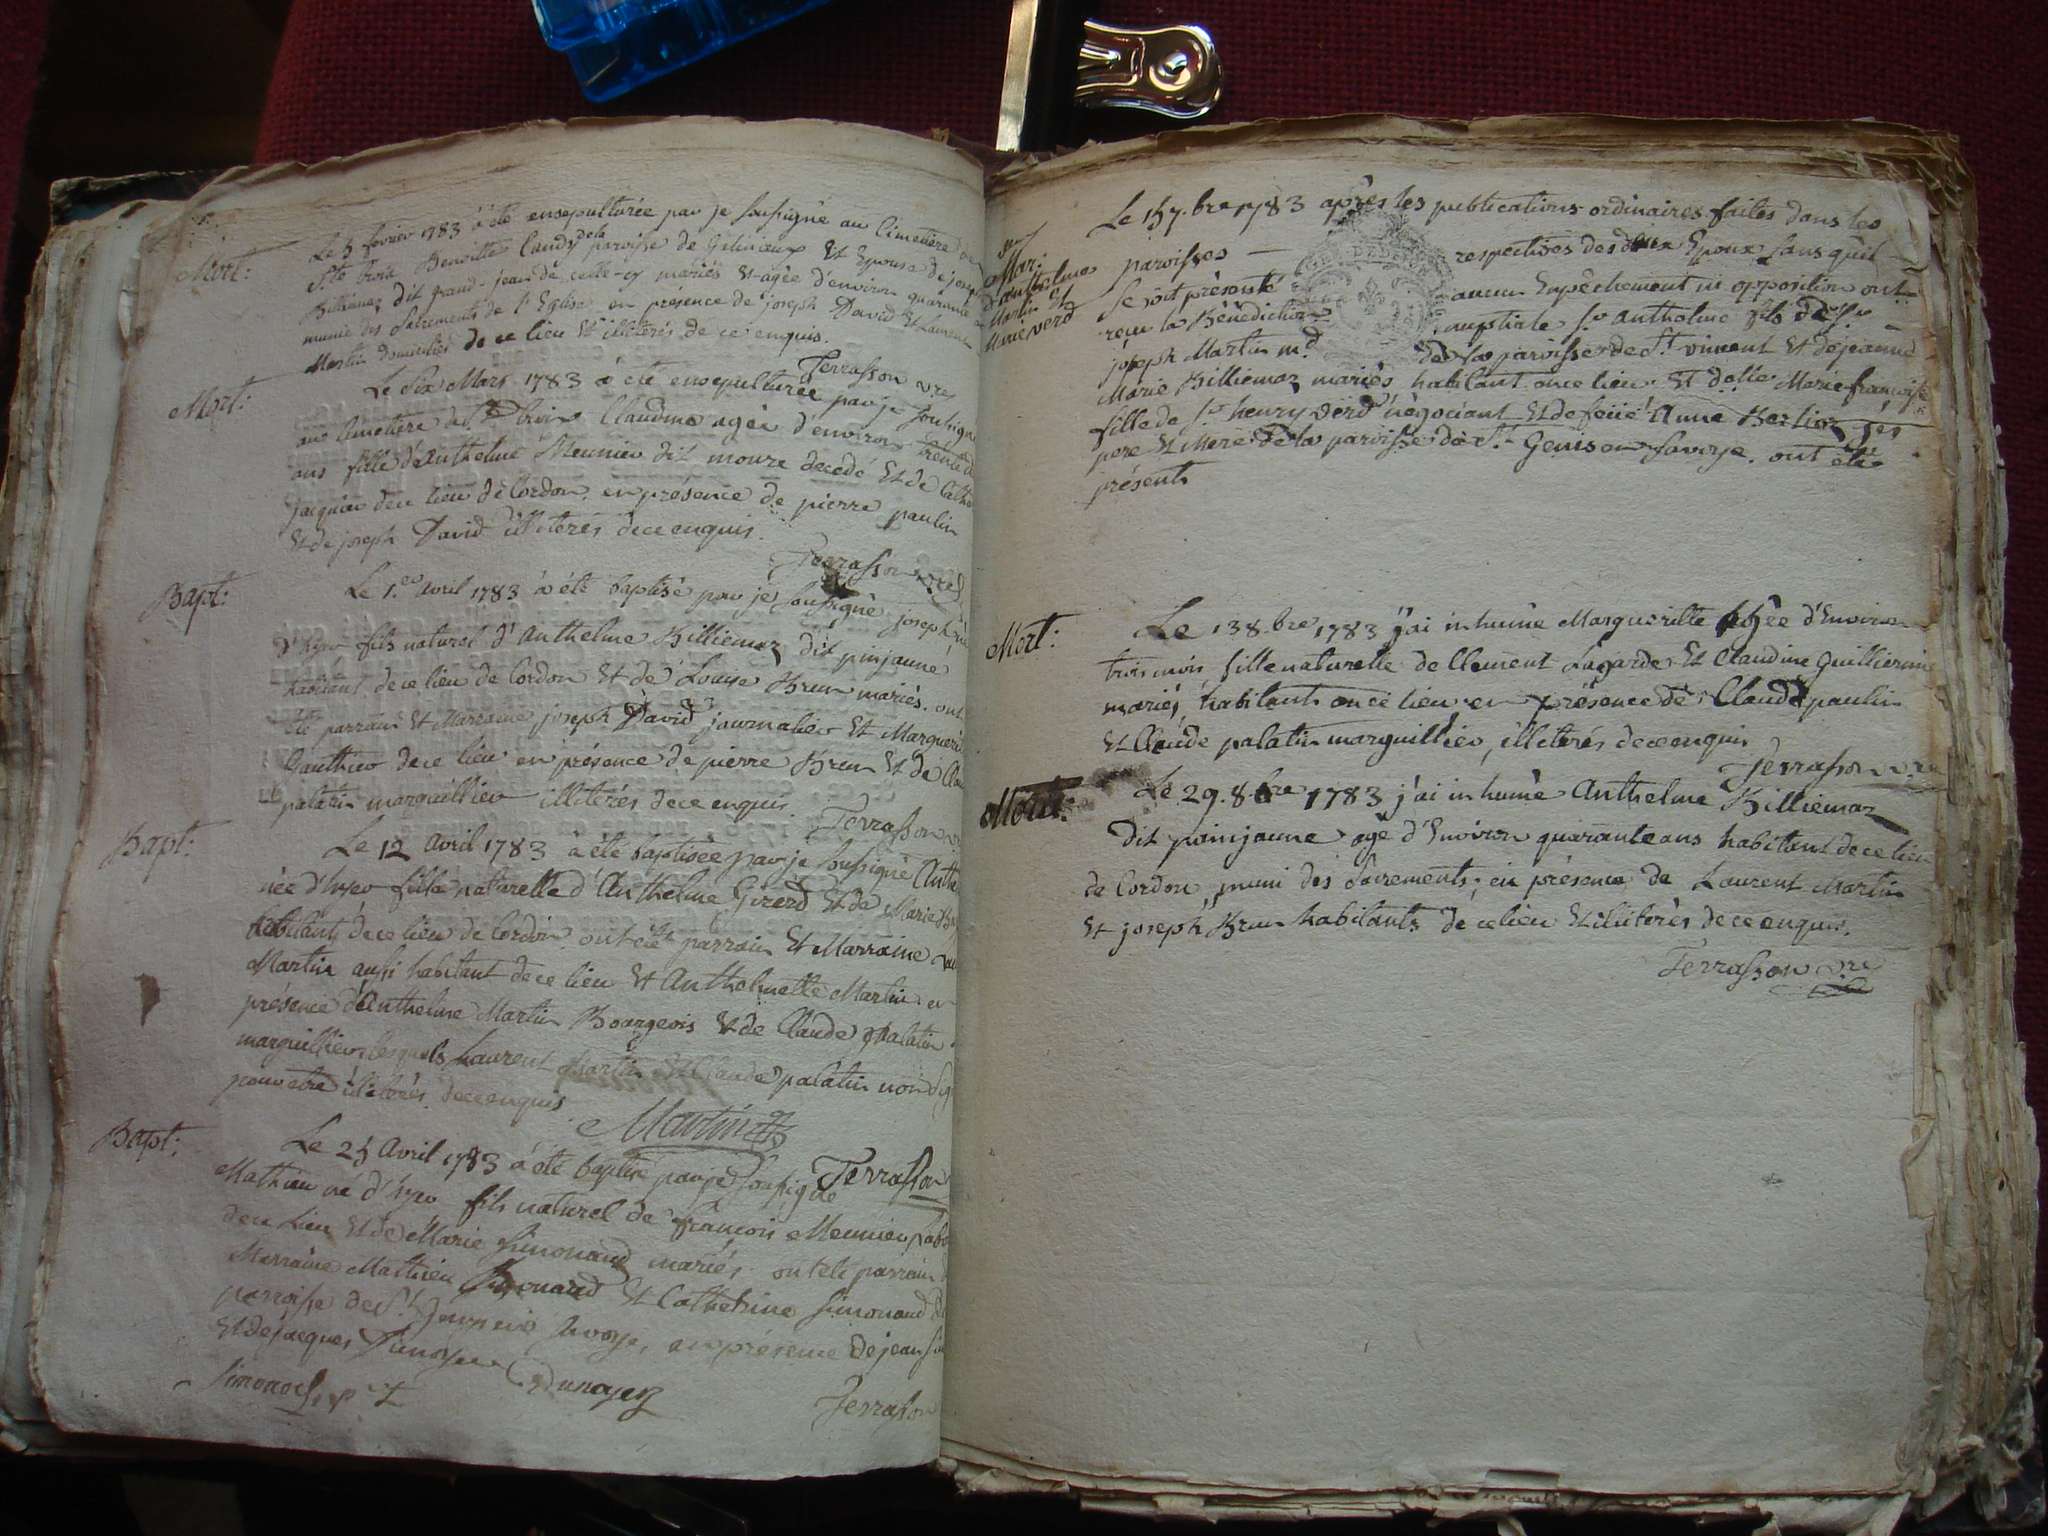 Mort:
Le 5 fevrier 1783 à été ensepulturée par je soussigné au Cimetiere de
Ste Croix Benoitte Candy de la paroisse de Gelinieux Et Epouse de joseph
Billiemaz dit grand-jean de celle-cy mariés Et agée d'environ quarante
munie des Sacrements de l'Eglise en présence de joseph David Et Laurent
Martin domiciliés de ce lieu Et illiterés de ce enquis.
Terrasson vre
Mort:
Le Six Mars 1783 à été ensepulturée par je soussigné
au Cimetiere de Ste Croix Claudine agée d'environ trente
ans fille d'Anthelme Meunier dit moure decedé Et de Cathe
jacquier de ce lieu de Cordon. en présence de pierre paulin
Et de joseph David illiterés de ce enquis.
Terrasson vre
Bapt:
Le 1.er avril 1783 à été baptisé par je soussigné joseph né
d'hyer fils naturel d'Anthelme Billiemaz dit pinjaune
habitant de ce lieu de Cordon Et de Louise Brun mariés. ont
été parrain Et Marraine joseph David journalier Et Margueri
Gauthier de ce lieu en présence de pierre Brun Et de Clau
palatin marguillier illiterés de ce enquis.
Terrasson
Bapt:
Le 12 Avril 1783 à été baptisée par je soussigné Anthe
née d'hyer fille naturelle d'Anthelme Girerd Et de Marie
habitants de ce lieu de Cordon. ont été parrain Et Marraine
Martin aussi habitant de ce lieu Et Anthelmette Martin en
présence d'Anthelme Martin Bourgeois Et de Claude palatin
marguillier lesquels Laurent Martin Et Claude palatin non
pour etre illiterés de ce enquis.
Martin
Terrasson
Bapt:
Le 25 Avril 1783 à été baptisé par je soussigné
Mathieu né d'hyer fils naturel de françois Meunier
de ce Lieu Et de Marie Simonand mariés. ont été parrain
Marraine Mathieu Simonand Et Catherine Simonand
paroisse de St en Savoye, en présence de jean
Et de jacques Dunoyer
Dunoyer
Terrasson
Mar:
d'anthelme
Martin et
Le 15 7.bre 1783 après les publications ordinaires faites dans les
paroisses respectives des deux Epoux sans qu'il
Se soit présenté aucun Empêchement ni opposition ont
reçu la Bénédiction nuptiale Sr Anthelme fils de Sr
joseph Martin md. de la paroisse de St. vincent Et de jeanne
Marie Billiemaz mariés habitant en ce lieu Et delle Marie françoise
fille de Sr henry verd négociant Et de feüe Anne Berlioz Ses
pere Et Mere de la paroisse de St. Genis en Savoye. ont été
présents
Mort:
Le 13 8.bre 1783 j'ai inhumé Marguerite agée d'Environ
trois mois, fille naturelle de Clement Lagarde Et Claudine Guilliermin
mariés, habitants en ce lieu en présence de Claude paulin
Et Claude palatin marguillier, illiterés de ce enquis
Terrasson vre
Mort:
Le 29. 8.bre 1783 j'ai inhumé Anthelme Billiemaz
Dit painjaune agé d'Environ quarante ans habitant de ce lieu
de Cordon muni des Sacrements; en présence de Laurent Martin
Et joseph Brun habitants de ce lieu Et illiterés de ce enquis.
Terrasson vre